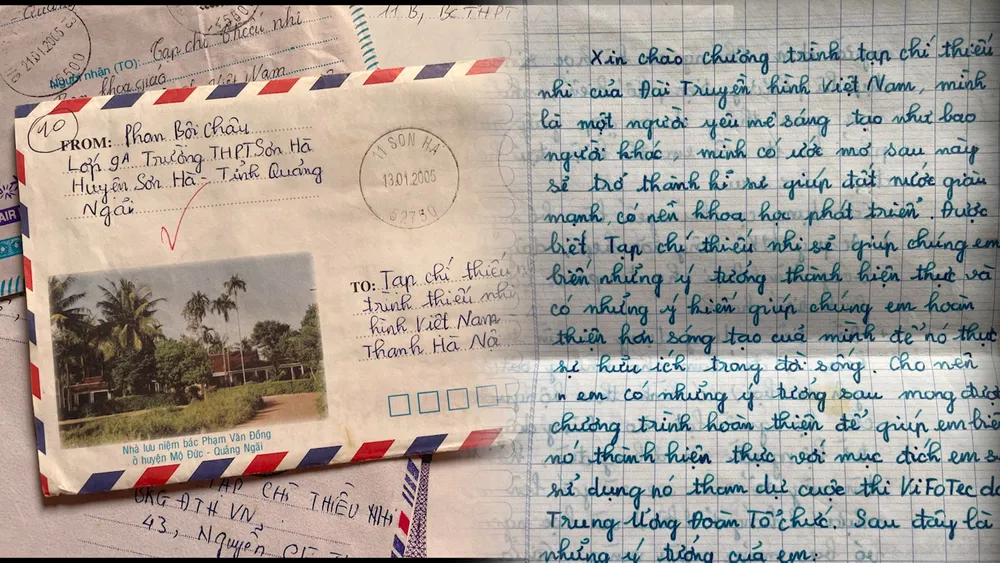 11 B, BC THPT
21.01.2005
Tạp chí thiếu nhi
Người nhận (TO):
khoa giáo
Việt Nam
10
FROM: Phan Bội Châu
Lớp 9A Trường THPT Sơn Hà
Huyện Sơn Hà - Tỉnh Quảng
Ngãi
11 SON HA
13.01.2005
52730
TO: Tạp chí thiếu n
trình thiếu nhi
hình Việt Nam
Thanh Hà Nộ
Nhà lưu niệm bác Phạm Văn Đồng
ở huyện Mộ Đức - Quảng Ngãi
AIR
TẠP CHÍ THIẾU NHI
BKG ĐTH VN
43, Nguyễn
Xin chào chương trình tạp chí thiếu
nhi của Đài Truyền hình Việt Nam, mình
là một người yêu mê sáng tạo như bao
người khác, mình có ước mơ sau này
sẽ trở thành kĩ sư giúp đất nước giàu
mạnh, có nền khoa học phát triển. Được
biết Tạp chí thiếu nhi sẽ giúp chúng em
biến những ý tưởng thành hiện thực và
có những ý kiến giúp chúng em hoàn
thiện hơn sáng tạo của mình để nó thực
sự hữu ích trong đời sống. Cho nên
em có những ý tưởng sau mong đượ
chương trình hoàn thiện để giúp em biế
nó thành hiện thực với mục đích em s
sử dụng nó tham dự cuộc thi ViFoTec do
Trung Ương Đoàn Tổ chức. Sau đây là
những ý tưởng của em: